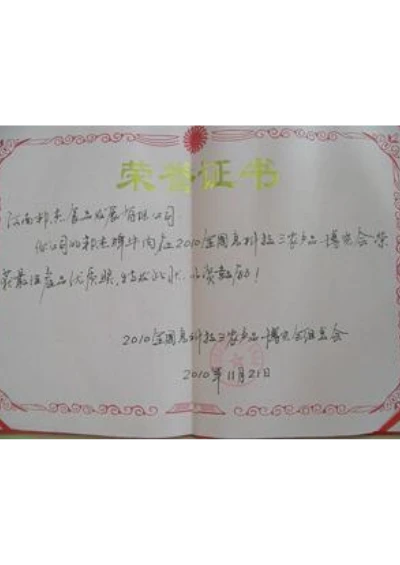 荣誉证书
河南邦杰食品发展有限公司：
你公司的邦杰牌牛肉在2010全国高科技三农产品博览会荣
获最佳产品优质奖，特发此状，以资鼓励！
2010全国高科技三农产品博览会组委会
2010年11月21日